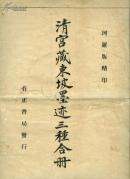 珂羅版精印
清宮藏東坡墨迹三種合册
有正書局發行